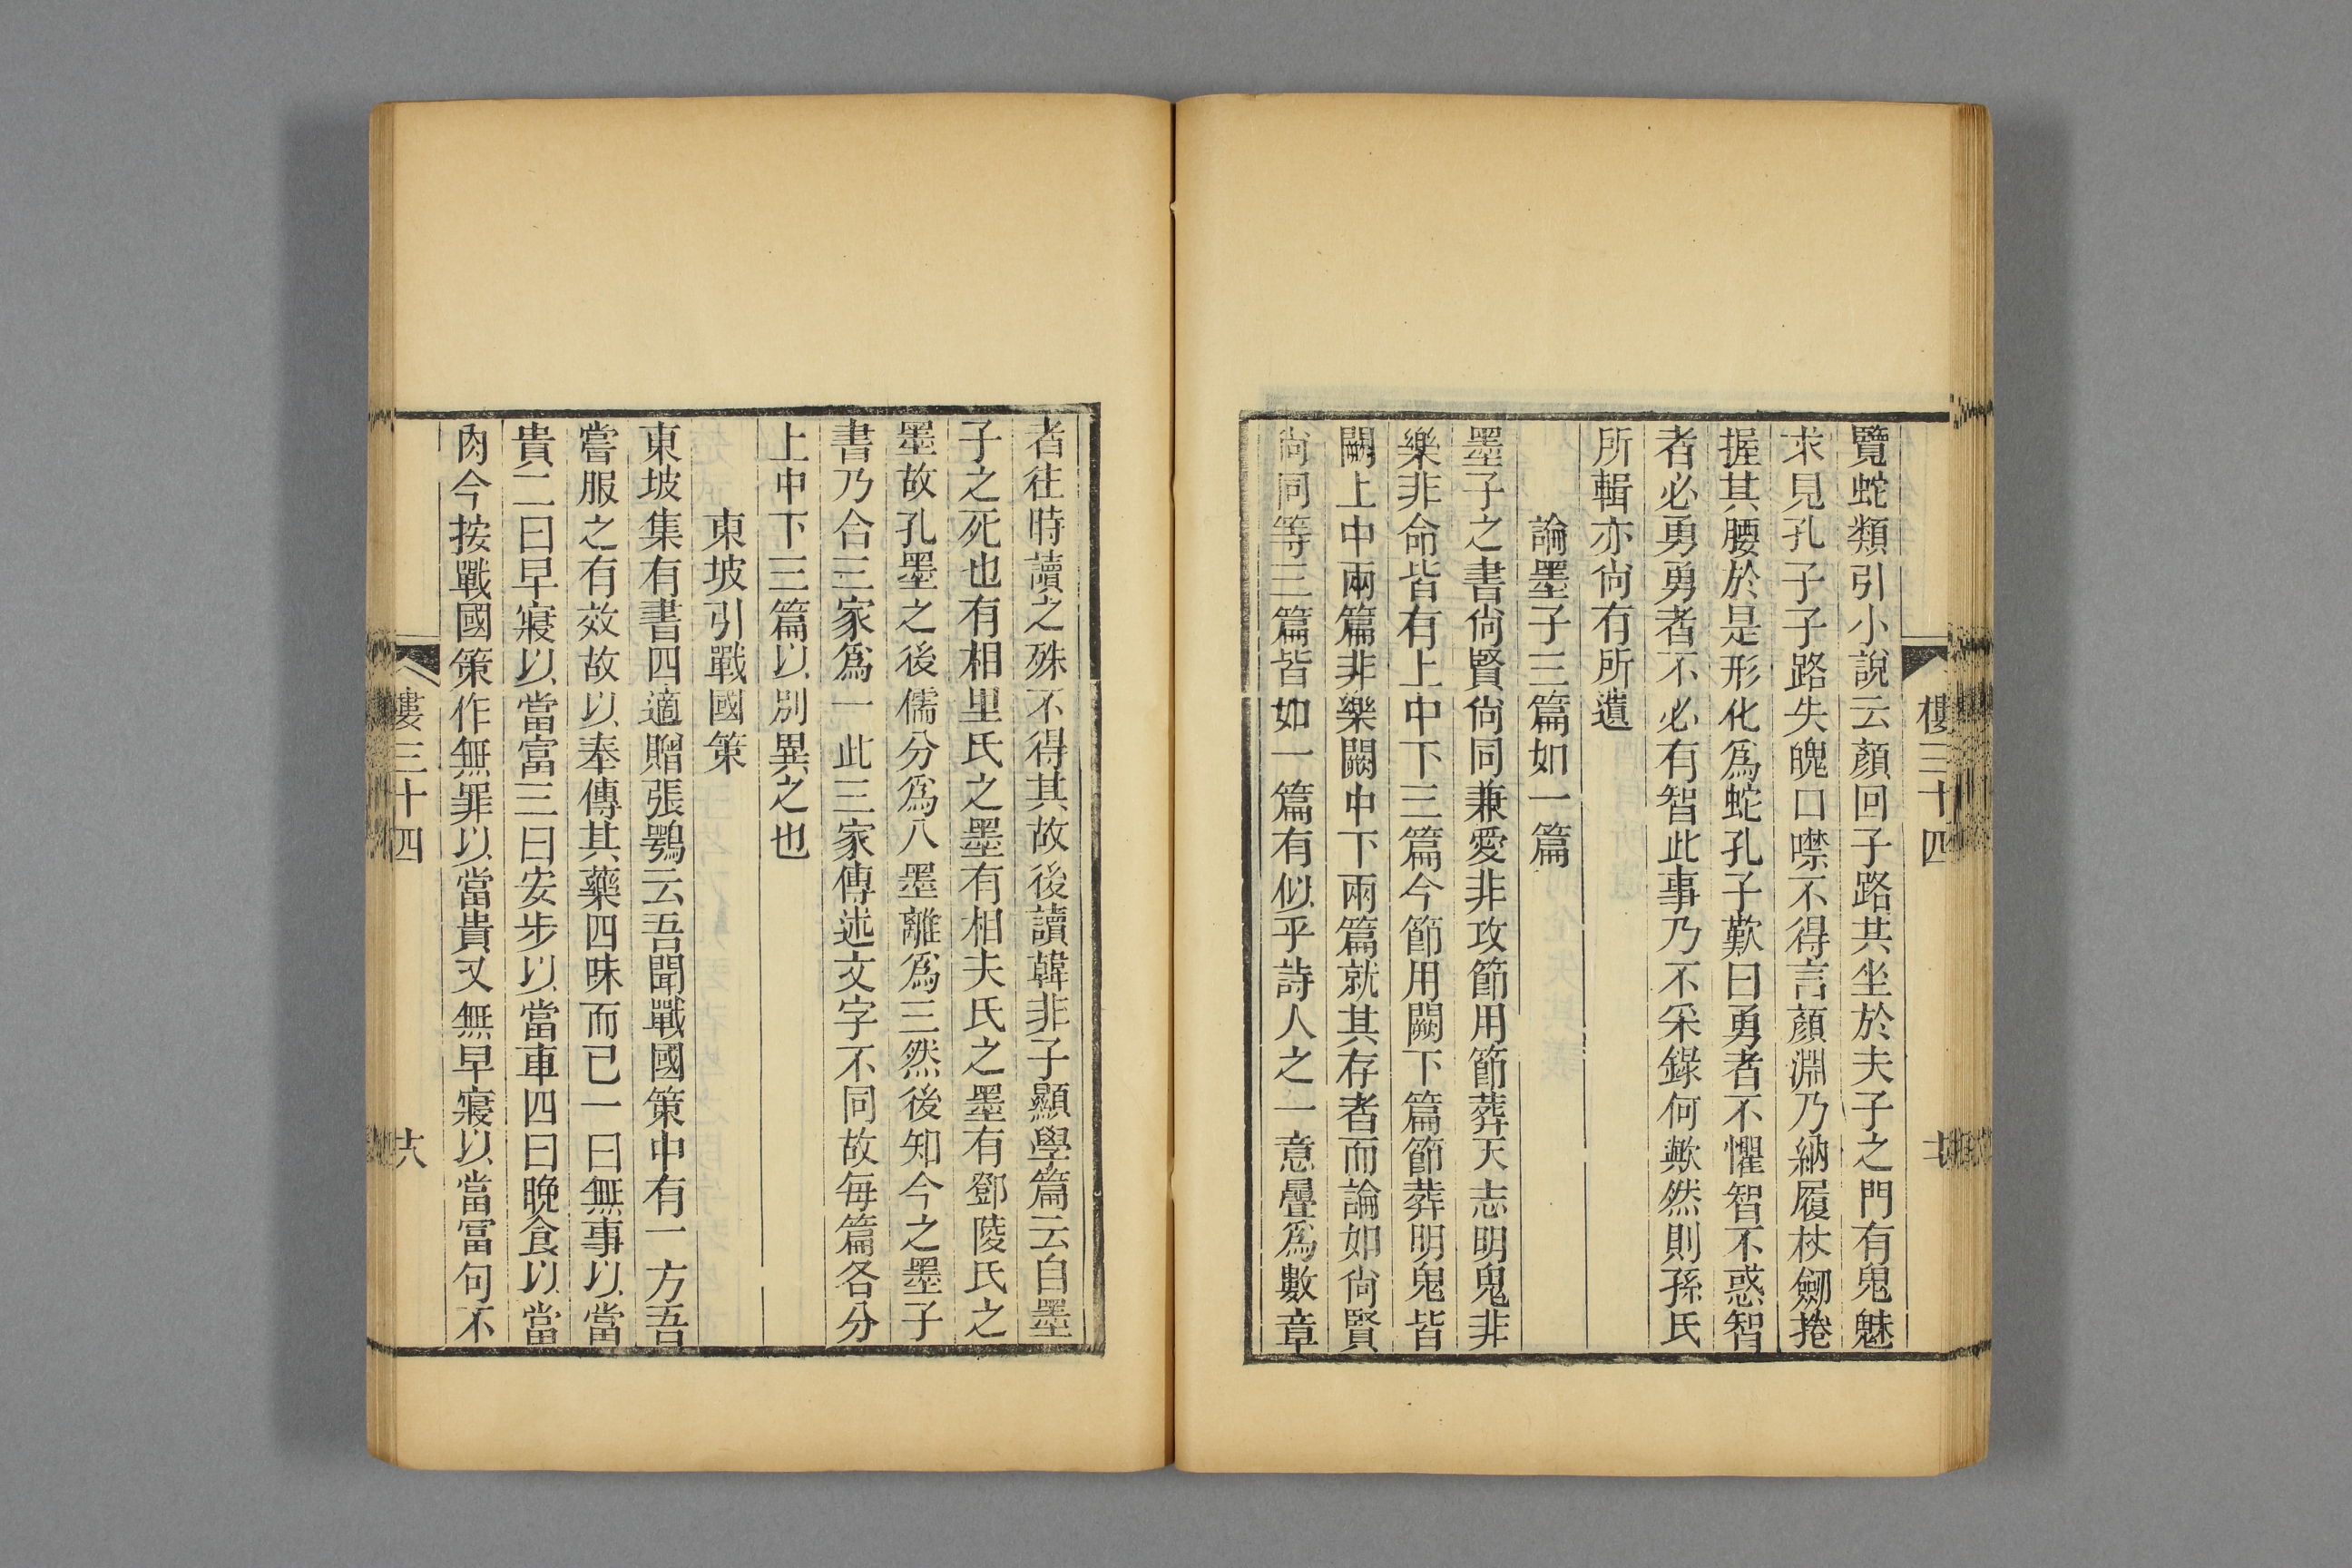 樓三十四
覽蛇類引小說云顏回子路共坐於夫子之門有鬼魅
求見孔子子路失魄口噤不得言顏淵乃納履杖劒捲
握其腰於是形化爲蛇孔子歎曰勇者不懼智不惑智
者必勇勇者不必有智此事乃不采錄何歟然則孫氏
所輯亦尙有所遺
論墨子三篇如一篇
墨子之書尙賢尙同兼愛非攻節用節葬天志明鬼非
樂非命皆有上中下三篇今節用闕下篇節葬明鬼皆
闕上中兩篇非樂闕中下兩篇就其存者而論如尙賢
尙同等三篇皆如一篇有似乎詩人之一意疊爲數章
者往時讀之殊不得其故後讀韓非子顯學篇云自墨
子之死也有相里氏之墨有相夫氏之墨有鄧陵氏之
墨故孔墨之後儒分爲八墨離爲三然後知今之墨子
書乃合三家爲一此三家傳述文字不同故每篇各分
上中下三篇以別異之也
東坡引戰國策
東坡集有書四適贈張鶚云吾聞戰國策中有一方吾
嘗服之有效故以奉傳其藥四味而已一曰無事以當
貴二曰早寢以當富三曰安步以當車四曰晚食以當
肉今按戰國策作無罪以當貴又無早寢以當富句不
樓三十四
六